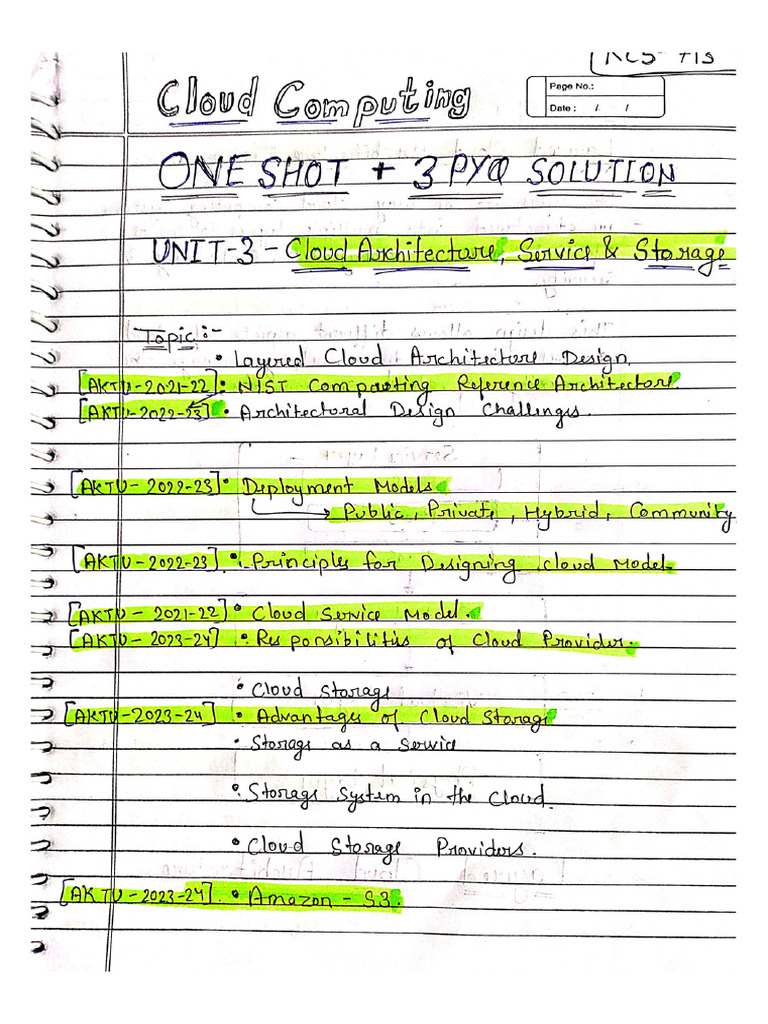 KCS-713
Cloud Computing
Page No.:
Date : / /
ONE SHOT + 3 PYQ SOLUTION
UNIT-3 - Cloud Architecture, Service & Storage
Topic:-
• Layered Cloud Architecture Design.
[AKTU-2021-22] • NIST Compouting Reference Architecture
[AKTU-2022-23] • Architectural Design Challenges.
[AKTU-2022-23] • Deployment Models
Public, Private, Hybrid, Community
[AKTU-2022-23] • Principles for Designing cloud Model.
[AKTU-2021-22] • Cloud Service Model.
[AKTU-2023-24] • Responsibilities of Cloud Provider.
• Cloud Storage
[AKTU-2023-24] • Advantages of Cloud Storage
• Storage as a Service
• Storage System in the Cloud.
• Cloud Storage Providers.
[AKTU-2023-24]. • Amazon - S3.